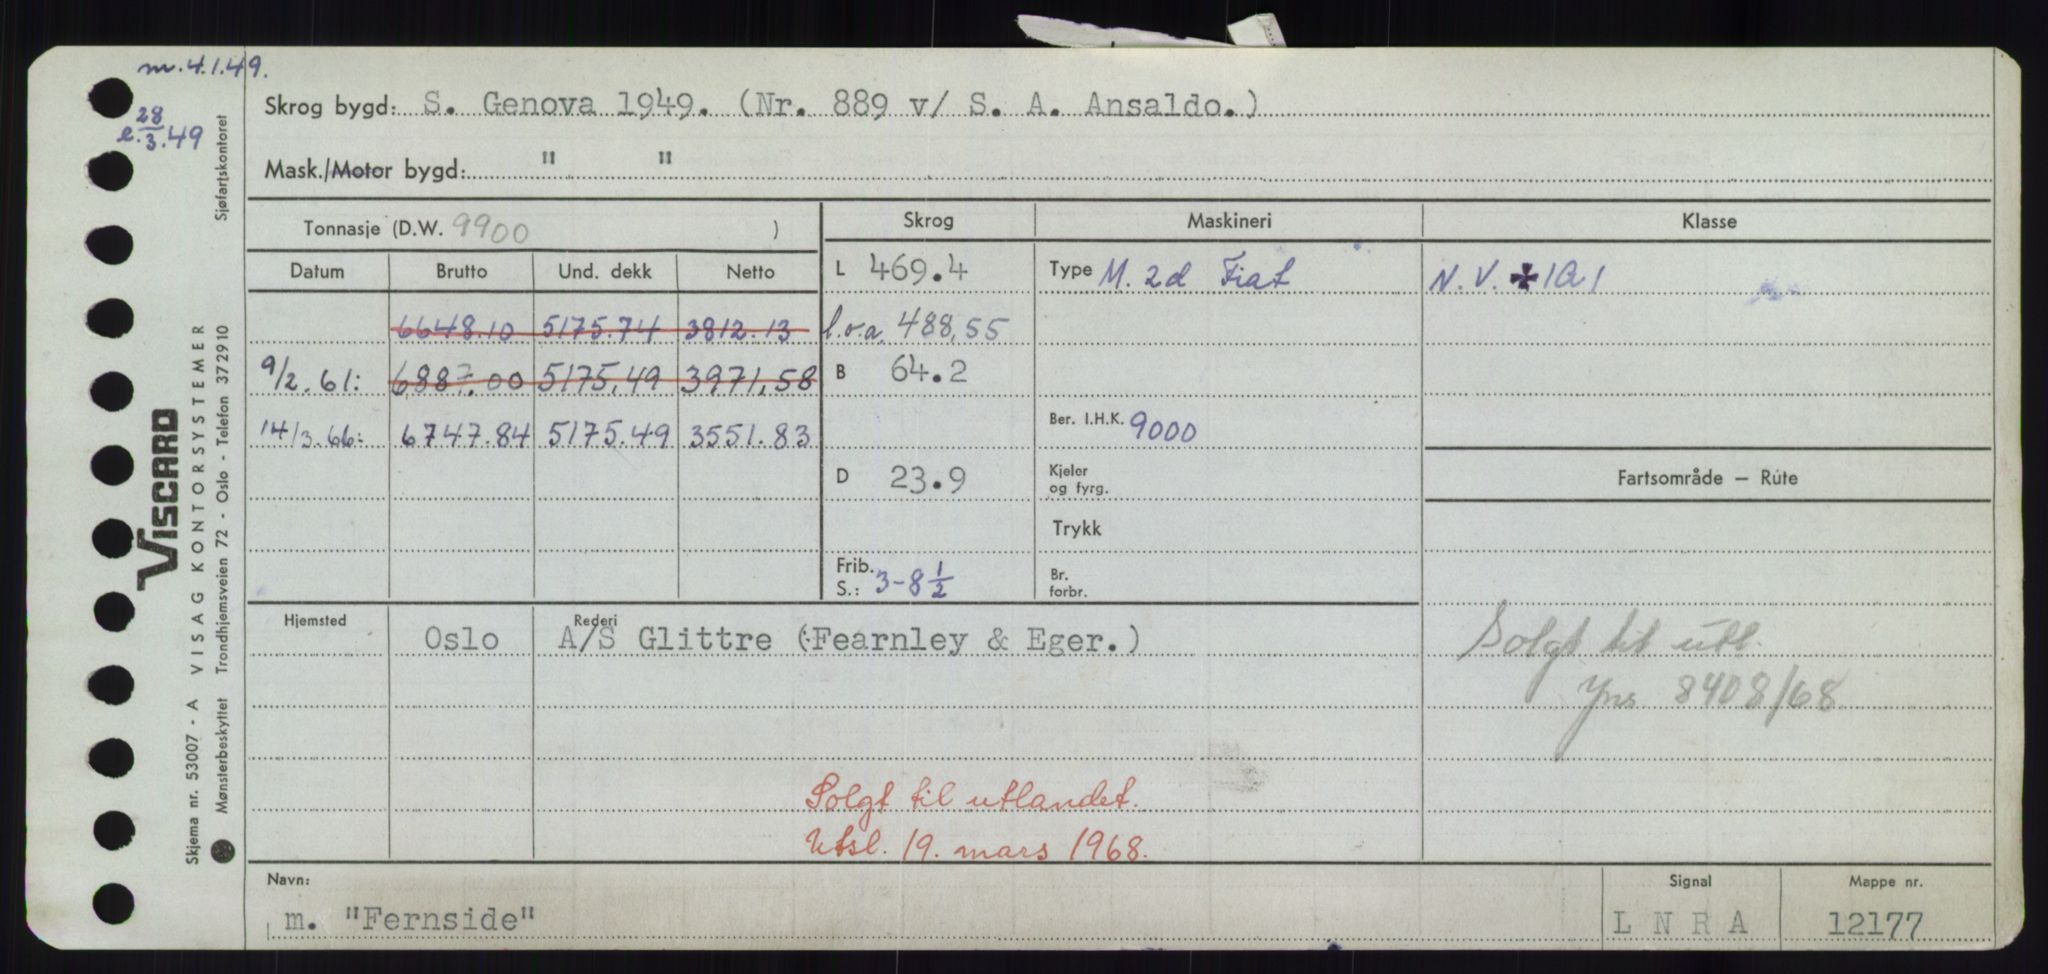 m. 4.1.49.
e. 28/3.49
Skrog bygd: S. Genova 1949. (Nr. 889 v/ S. A. Ansaldo.)
Mask./Motor bygd: " "
Tonnasje (D.W. 9900 )
Skrog
Maskineri
Klasse
Datum Brutto Und. dekk Netto
L 469.4
Type M. 2d Fiat
N. V. ✠ 1A1
6648.10 5175.74 3812.13
l.o.a. 488,55
9/2.61: 6887.00 5175,49 3971,58
B 64.2
14/3.66: 6747.84 5175.49 3551.83
Ber. I.H.K. 9000
D 23.9
Kjeler og fyrg.
Fartsområde — Rute
Trykk
Frib. S.: 3-8 1/2
Br. forbr.
Hjemsted
Rederi
Oslo A/S Glittre (Fearnley & Eger.)
Solgt til utl.
Jns 8408/68
Solgt til utlandet.
Utsl. 19. mars 1968.
Navn:
m. "Fernside"
Signal
L N R A
Mappe nr.
12177
Skjema nr. 53007 - A VISAG KONTORSYSTEMER
VISCARD
Mønsterbeskyttet Trondhjemsveien 72 - Oslo - Telefon 372910 Sjøfartskontoret